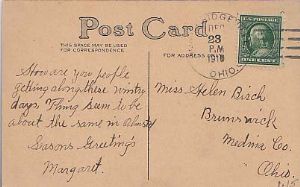 Post Card
THIS SPACE MAY BE USED
FOR CORRESPONDENCE
FOR ADDRESS
DEC
23
P.M
1910
OHIO.
How are you people
getting along these wintry
days. Thing seem to be
about the same in Olmsted
Seasons Greetings
Margaret.
Miss Helen Bisch
Brunswick
Medina Co.
Ohio.